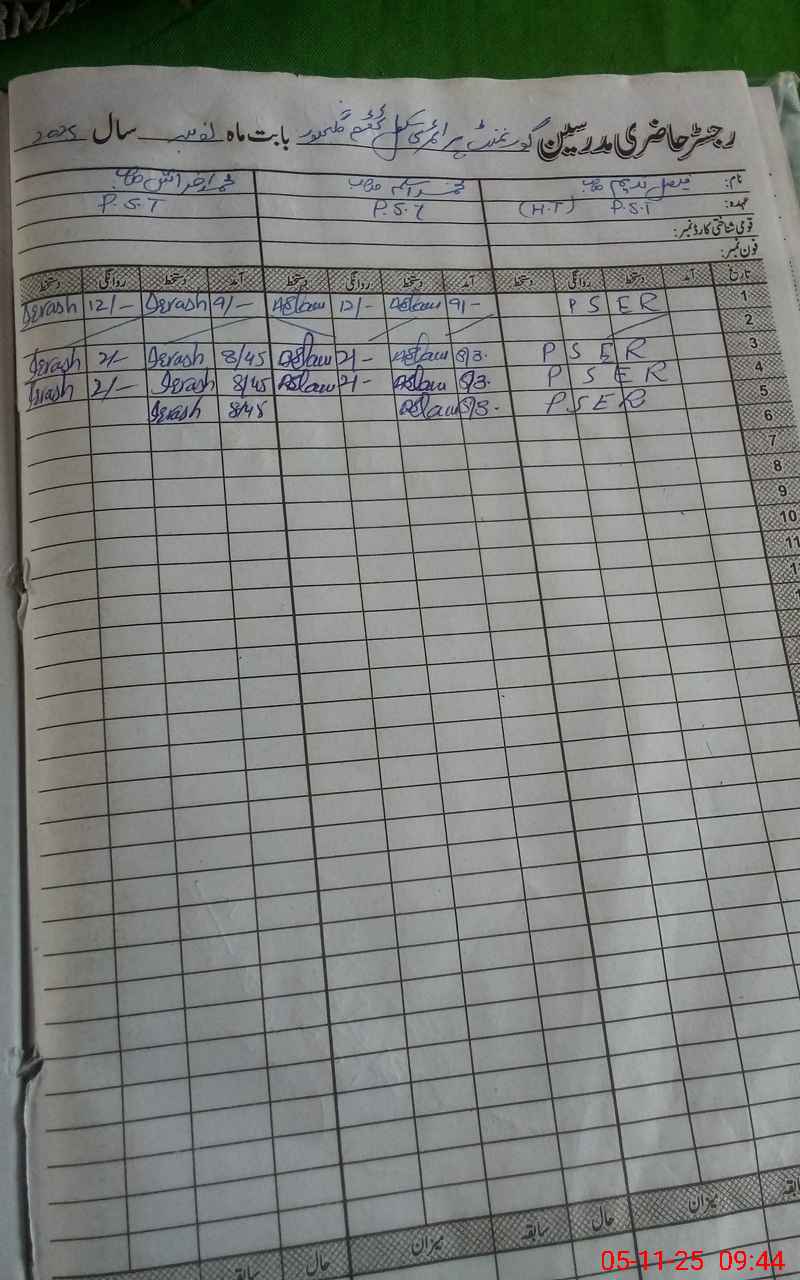 رجسٹر حاضری مدرسین گورنمنٹ پرائمری سکول بابت ماہ نومبر سال 2025
نام: محمد اسلم صاحب
عہدہ: P.S.T (H.T) P.S.T P.S.T
قومی شناختی کارڈ نمبر:
فون نمبر:
تاریخ آمد دستخط روانگی دستخط آمد دستخط روانگی دستخط آمد دستخط روانگی دستخط
1 P S E R 9/- Aslam 12/- Aslam 9/- Derash 12/- Derash
2
3 P S E R Aslam 2/- Aslam 8/45 Derash 2/- Derash
4 P S E R Aslam 2/- Aslam 8/45 Derash 2/-
5 P S E R Aslam 8/45 Derash
6
7
8
9
10
11
سابقہ میزان حال سابقہ میزان حال سابقہ
05-11-25 09:44